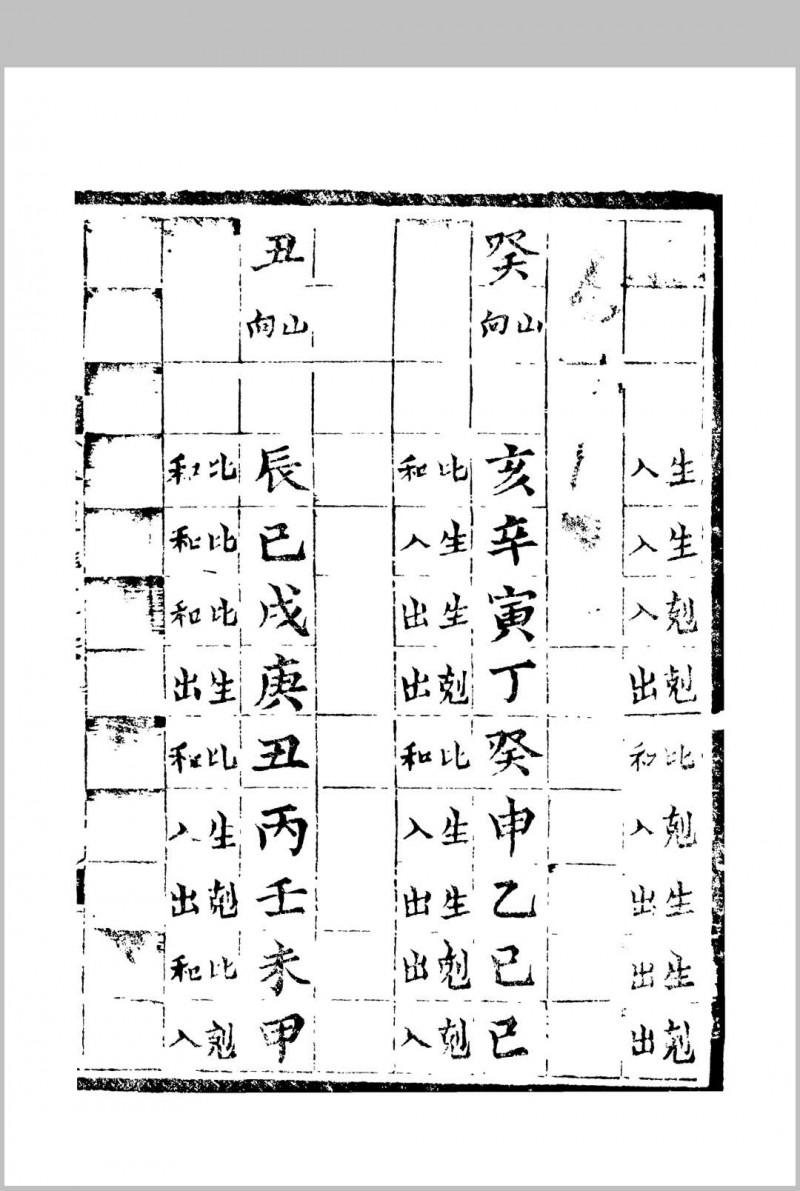 生入
生入
剋入
剋出
比和
剋入
生出
生出
剋出
癸
山向
亥
辛
寅
丁
癸
申
乙
巳
己
比和
生入
生出
剋出
比和
生入
生出
剋出
剋入
丑
山向
辰
己
戌
庚
丑
丙
壬
未
甲
比和
比和
比和
生出
比和
生入
剋出
比和
剋入